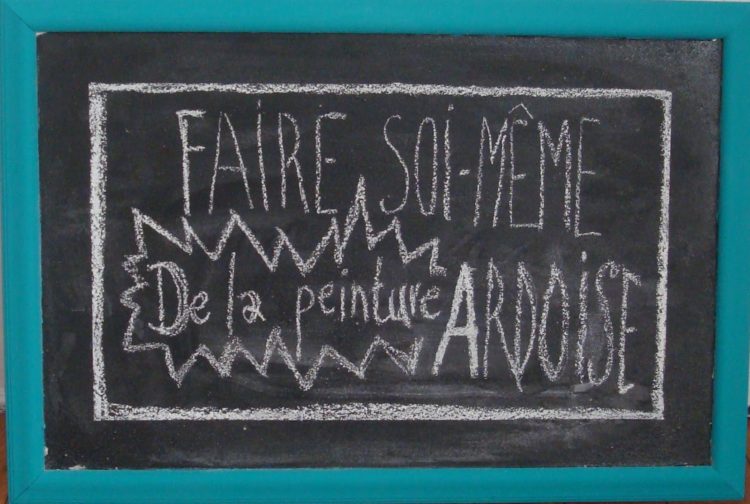 FAiRE SOi-MÊME
De la peinture ARDOiSE